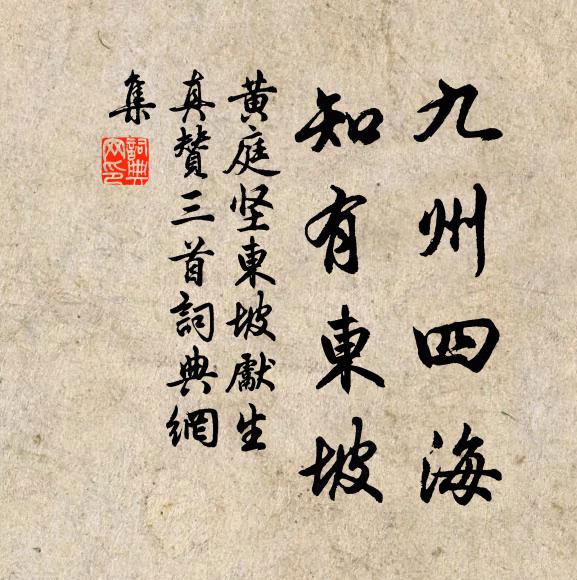 九州四海
知有東坡
黄庭坚東坡獻生
真贊三首詞典網
集
詞典網印